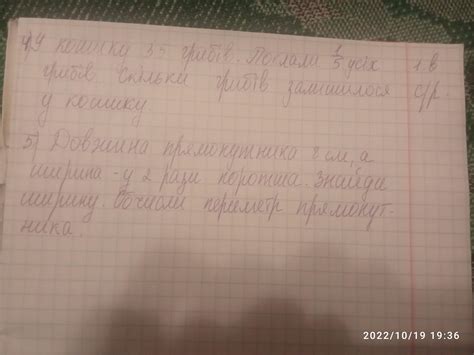 4) У кошику 35 грибів. Поклали 1/5 усіх 1 в
грибів скільки грибів залишилося с/р
у кошику.
5) Довжина прямокутника 8 см, а
ширина - у 2 рази коротша. Знайди
ширину. Обчисли периметр прямокут-
ника.
2022/10/19 19:36